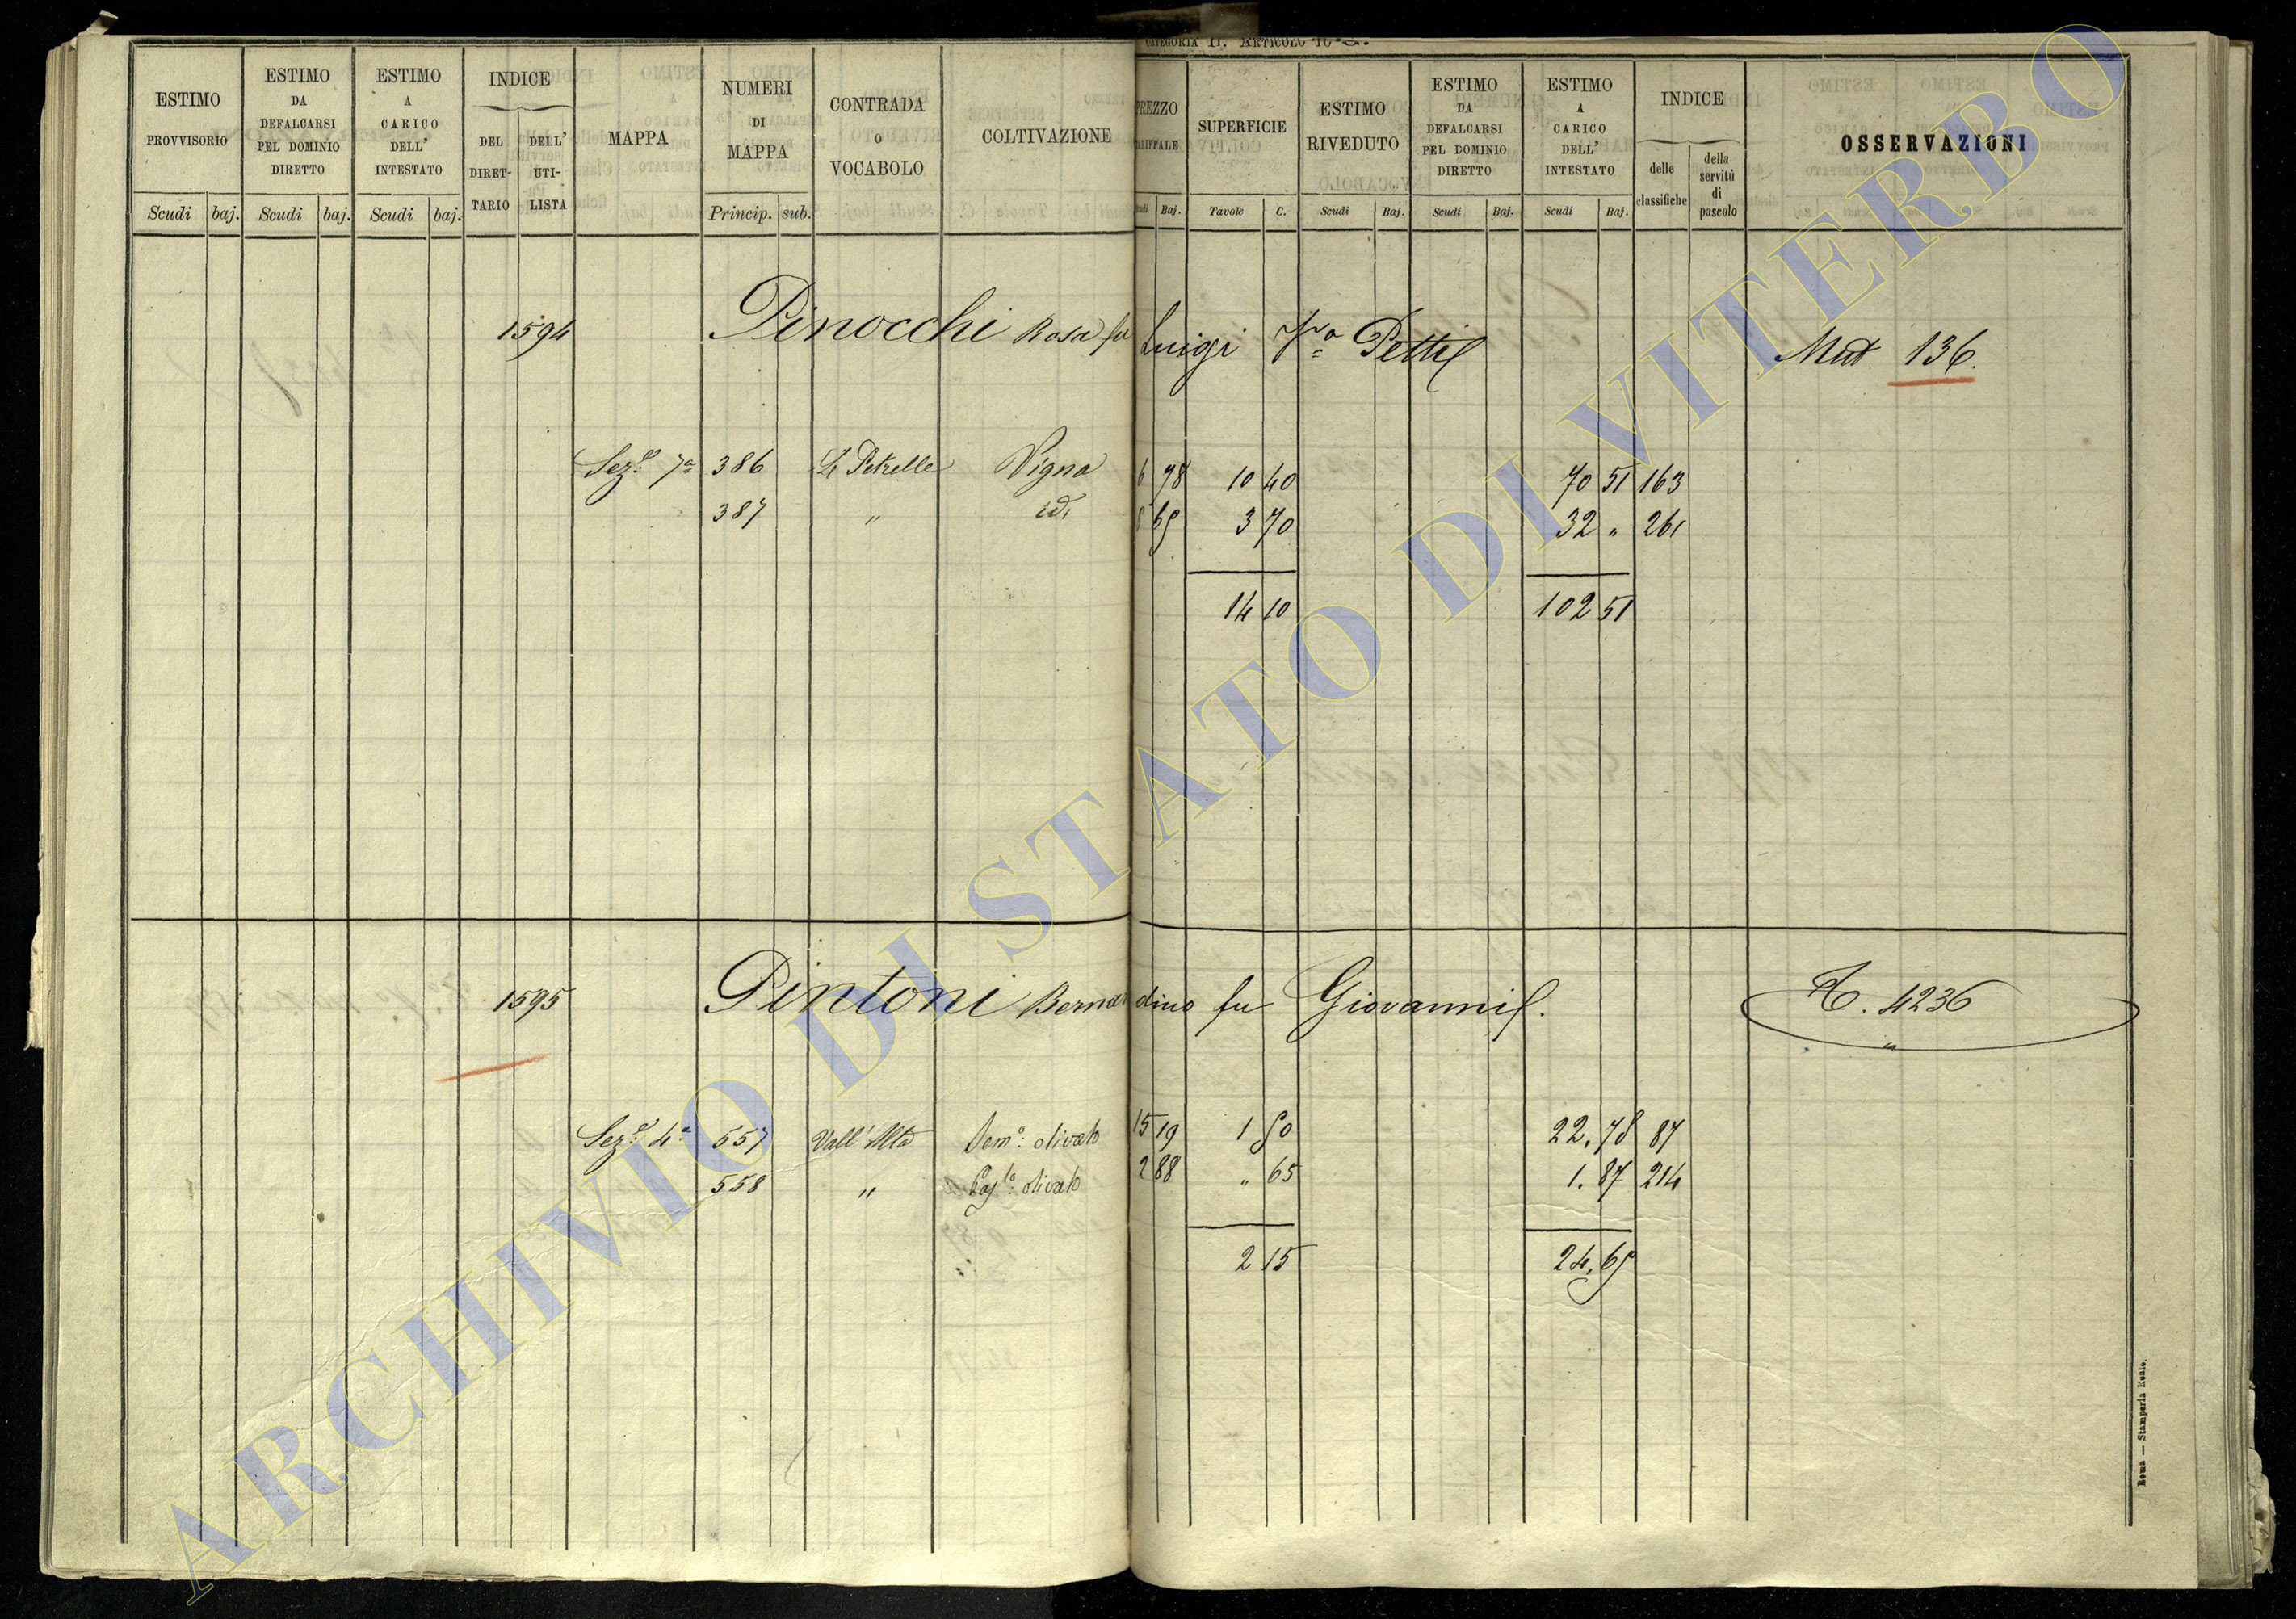 CATEGORIA II. ARTICOLO 10
ESTIMO PROVVISORIO
ESTIMO DA DEFALCARSI PEL DOMINIO DIRETTO
ESTIMO A CARICO DELL' INTESTATO
INDICE
DEL DIRET-TARIO
DELL' UTI-LISTA
MAPPA
NUMERI DI MAPPA
CONTRADA O VOCABOLO
COLTIVAZIONE
PREZZO TARIFFALE
SUPERFICIE
ESTIMO RIVEDUTO
ESTIMO DA DEFALCARSI PEL DOMINIO DIRETTO
ESTIMO A CARICO DELL' INTESTATO
INDICE
delle classifiche
della servitù di pascolo
OSSERVAZIONI
Scudi baj. Scudi baj. Scudi baj. Princip. sub. Baj. Tavole C. Scudi Baj. Scudi Baj. Scudi Baj.
1594 Pinocchi Rosa fu Luigi Petti Mut 136.
Sez.e 7a 386 Le Petrelle Vigna 6 78 10 40 70 51 163
387 " id. 8 65 3 70 32 " 261
14 10 102 51
1595 Pintoni Bernardino fu Giovanni. 4236
"
Sez.e 4a 557 Vall'Alta Sem.o olivato 15 19 1 50 22. 78 87
558 " Pas.to olivato 2 88 " 65 1. 87 214
2 15 24. 65
Roma — Stamperia Reale.
ARCHIVIO DI STATO DI VITERBO